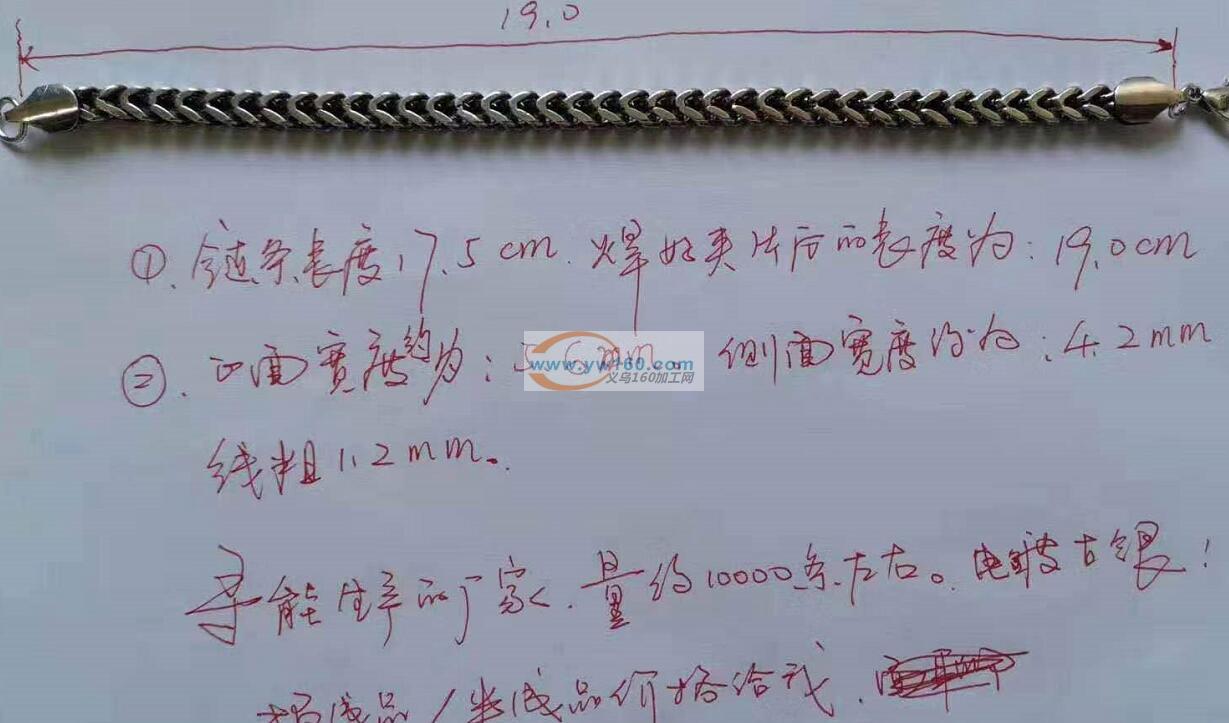 19.0
①.链条长度17.5cm.焊好夹片后的长度为:19.0cm
②.正面宽度约为: 6mm. 侧面宽度约为:4.2mm
www.yw160.com
义乌160加工网
线粗1.2mm。
寻能生产的厂家.量约10000条左右。电镀古银!
成品/半成品价格给我.